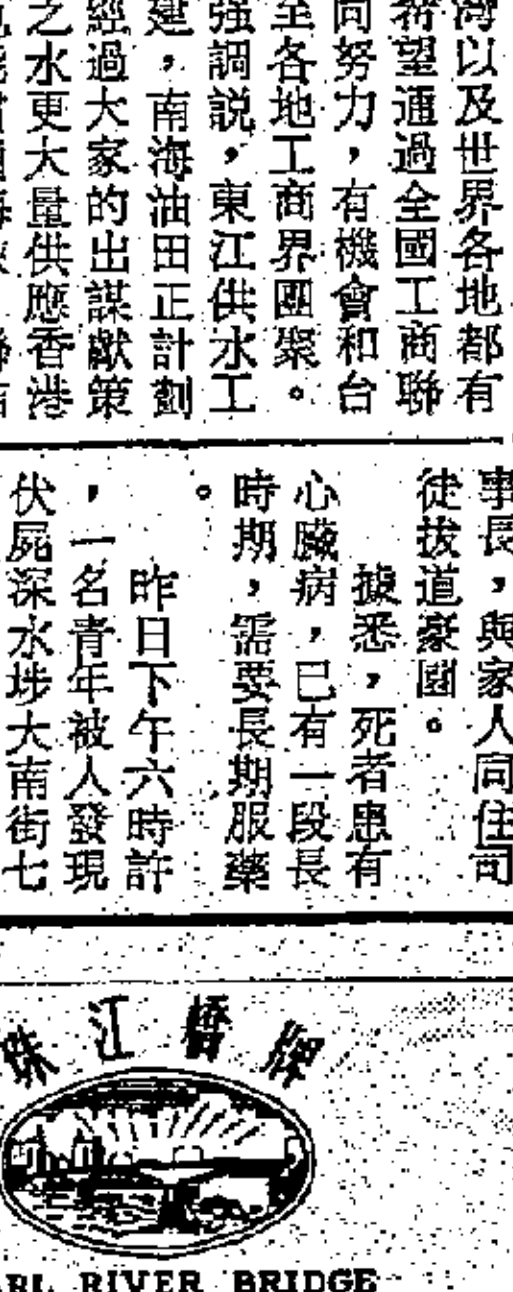 灣以及世界各地都有
希望通過全國工商聯
同努力，有機會和台
至各地工商界團聚。
强調説，東江供水工
建，南海油田正計劃
經過大家的出謀獻策
之水更大量供應香港
事長，與家人同住司
徒拔道豪園。
據悉，死者患有
心臟病，已有一段長
時期，需要長期服藥
。
昨日下午六時許
，一名青年被人發現
伏屍深水埗大南街七
珠江橋牌
ARL RIVER BRIDGE